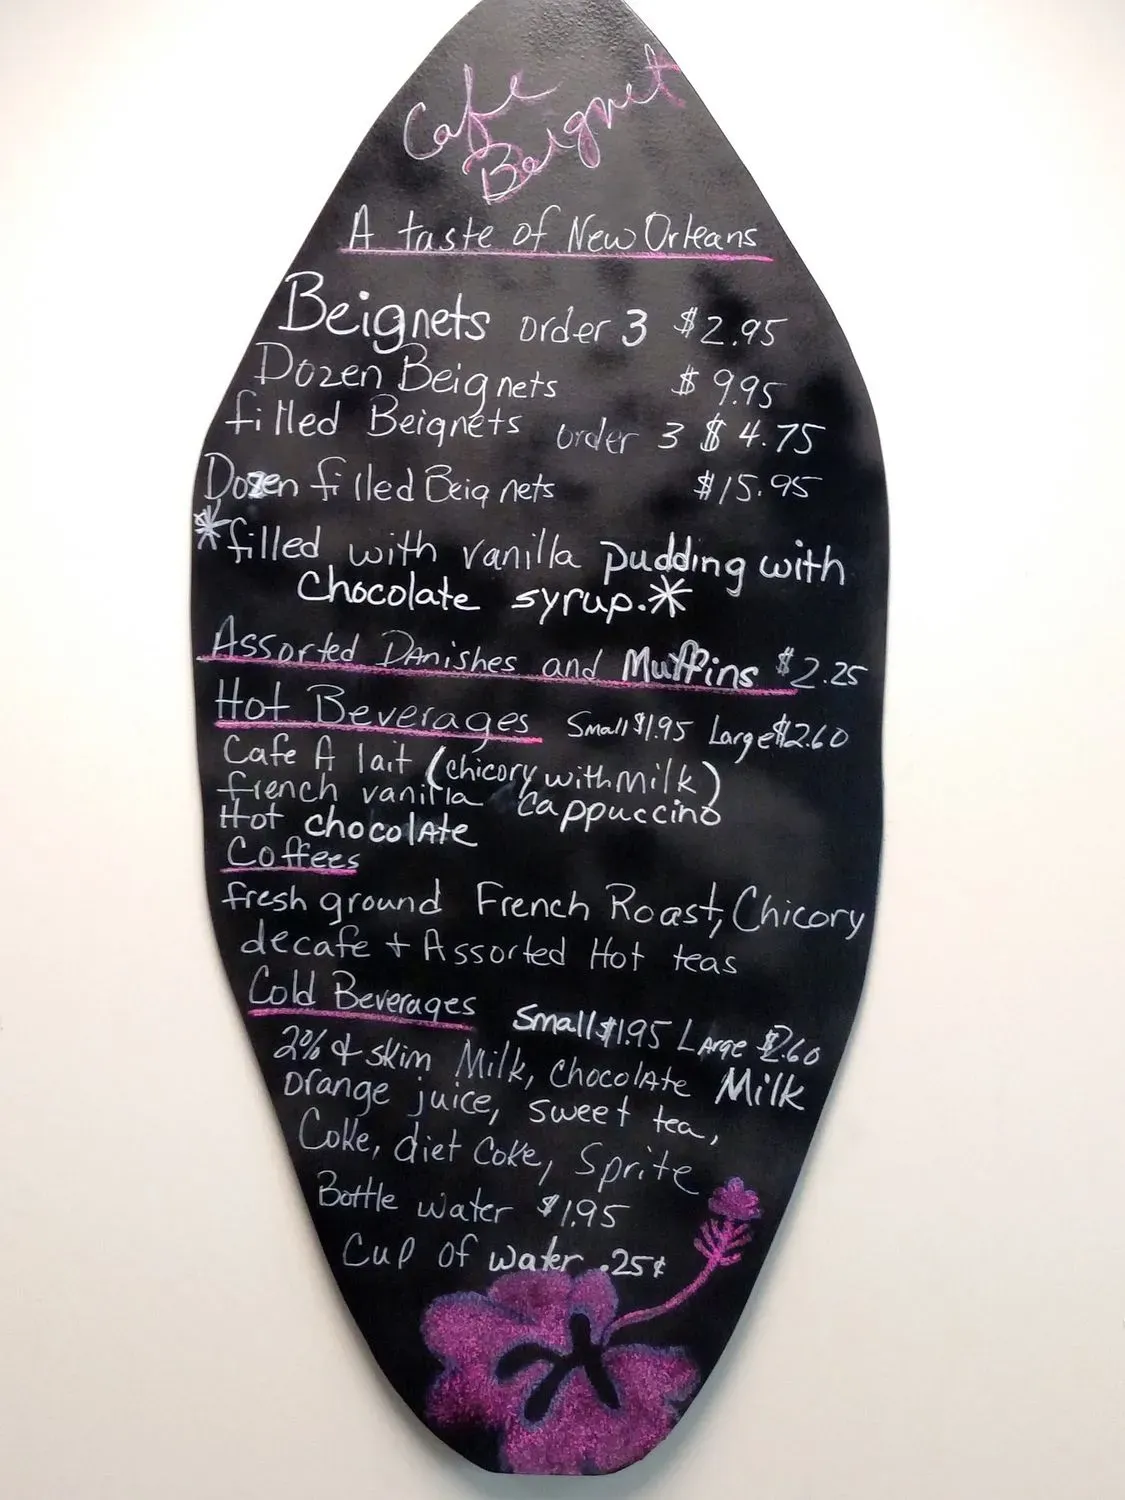 Cafe
Beignet
A taste of New Orleans
Beignets order 3 $2.95
Dozen Beignets $9.95
filled Beignets order 3 $4.75
Dozen filled Beignets $15.95
*filled with vanilla pudding with
chocolate syrup.*
Assorted Danishes and Muffins $2.25
Hot Beverages Small $1.95 Large $2.60
Cafe A lait (chicory with Milk)
french vanilla Cappuccino
Hot chocolate
Coffees
fresh ground French Roast, Chicory
decafe + Assorted Hot teas
Cold Beverages Small $1.95 Large $2.60
2% & skim Milk, Chocolate Milk
orange juice, sweet tea,
Coke, diet Coke, Sprite
Bottle water $1.95
Cup of water .25¢